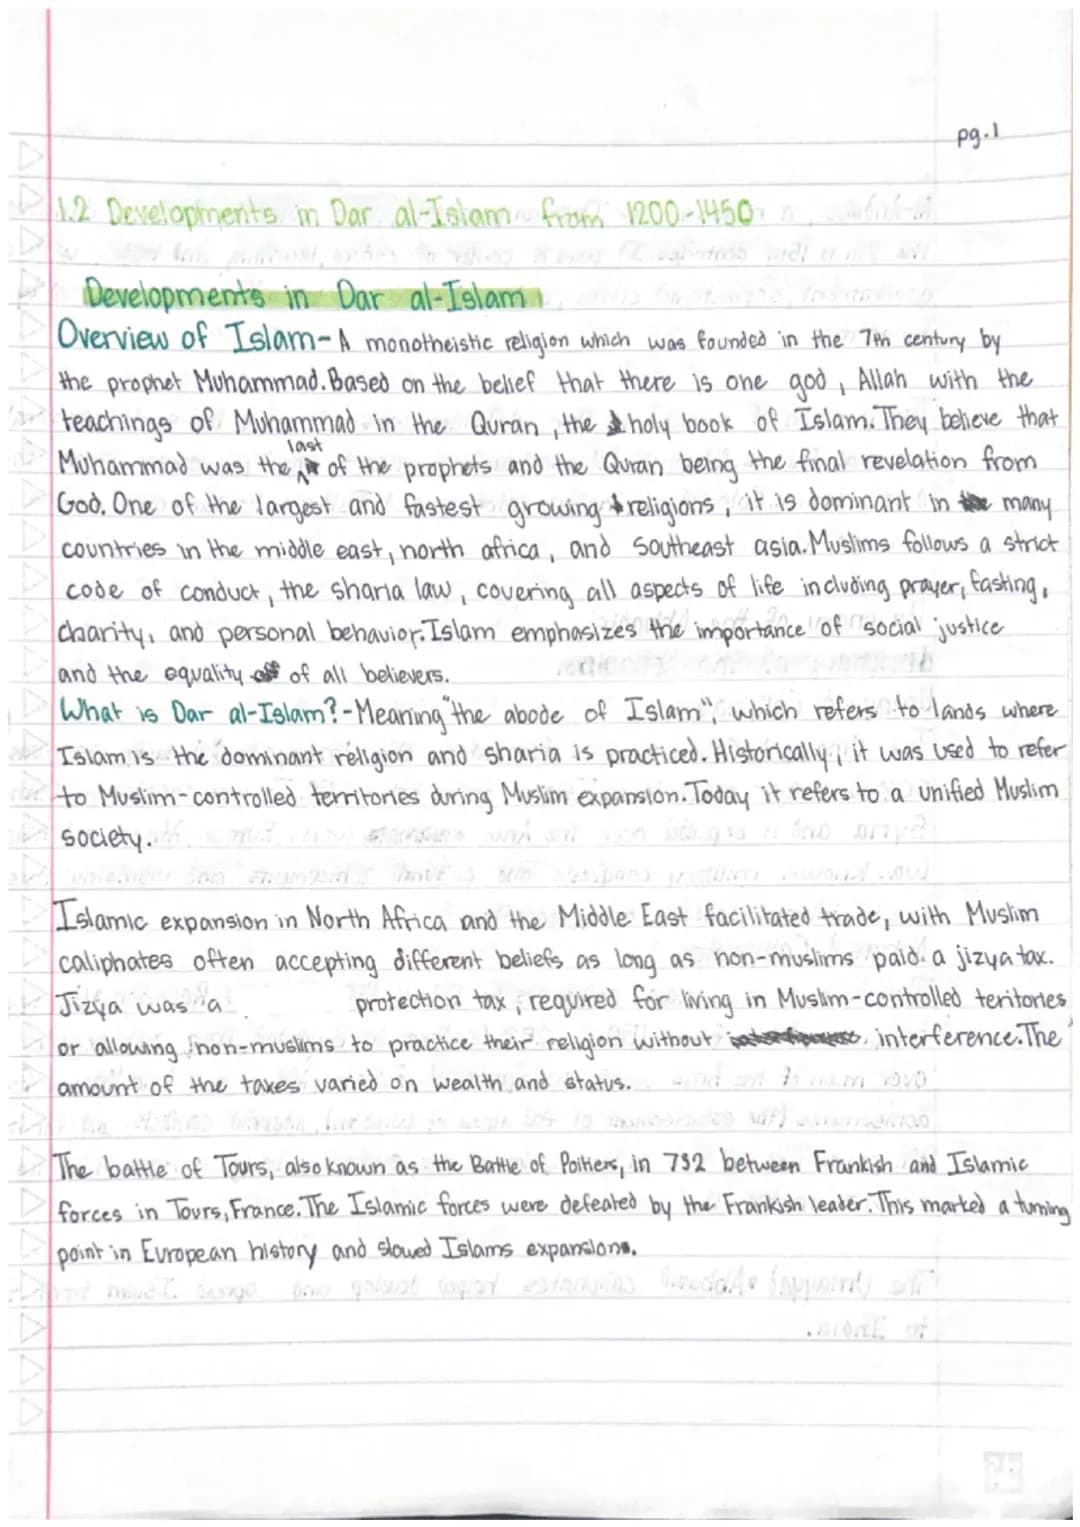 pg.1
1.2 Developments in Dar al-Islam from 1200-1450
Developments in Dar al-Islam
Overview of Islam- A monotheistic religion which was founded in the 7th century by
the prophet Muhammad. Based on the belief that there is one god, Allah with the
teachings of Muhammad in the Quran, the holy book of Islam. They believe that
Muhammad was the last of the prophets and the Quran being the final revelation from
God. One of the largest and fastest growing religions, it is dominant in many
countries in the middle east, north africa, and Southeast asia. Muslims follows a strict
code of conduct, the sharia law, covering all aspects of life including prayer, fasting,
charity, and personal behavior. Islam emphasizes the importance of social justice
and the equality of all believers.
What is Dar al-Islam?-Meaning "the abode of Islam", which refers to lands where
Islam is the dominant religion and sharia is practiced. Historically, it was used to refer
to Muslim-controlled territories during Muslim expansion. Today it refers to a unified Muslim
society.
Islamic expansion in North Africa and the Middle East facilitated trade, with Muslim
caliphates often accepting different beliefs as long as non-muslims paid a jizya tax.
Jizya was a protection tax, required for living in Muslim-controlled teritories
or allowing non-muslims to practice their religion without interference. The
amount of the taxes varied on wealth and status.
The battle of Tours, also known as the Battle of Poitiers, in 732 between Frankish and Islamic
forces in Tours, France. The Islamic forces were defeated by the Frankish leader. This marked a turning
point in European history and slowed Islams expansions.